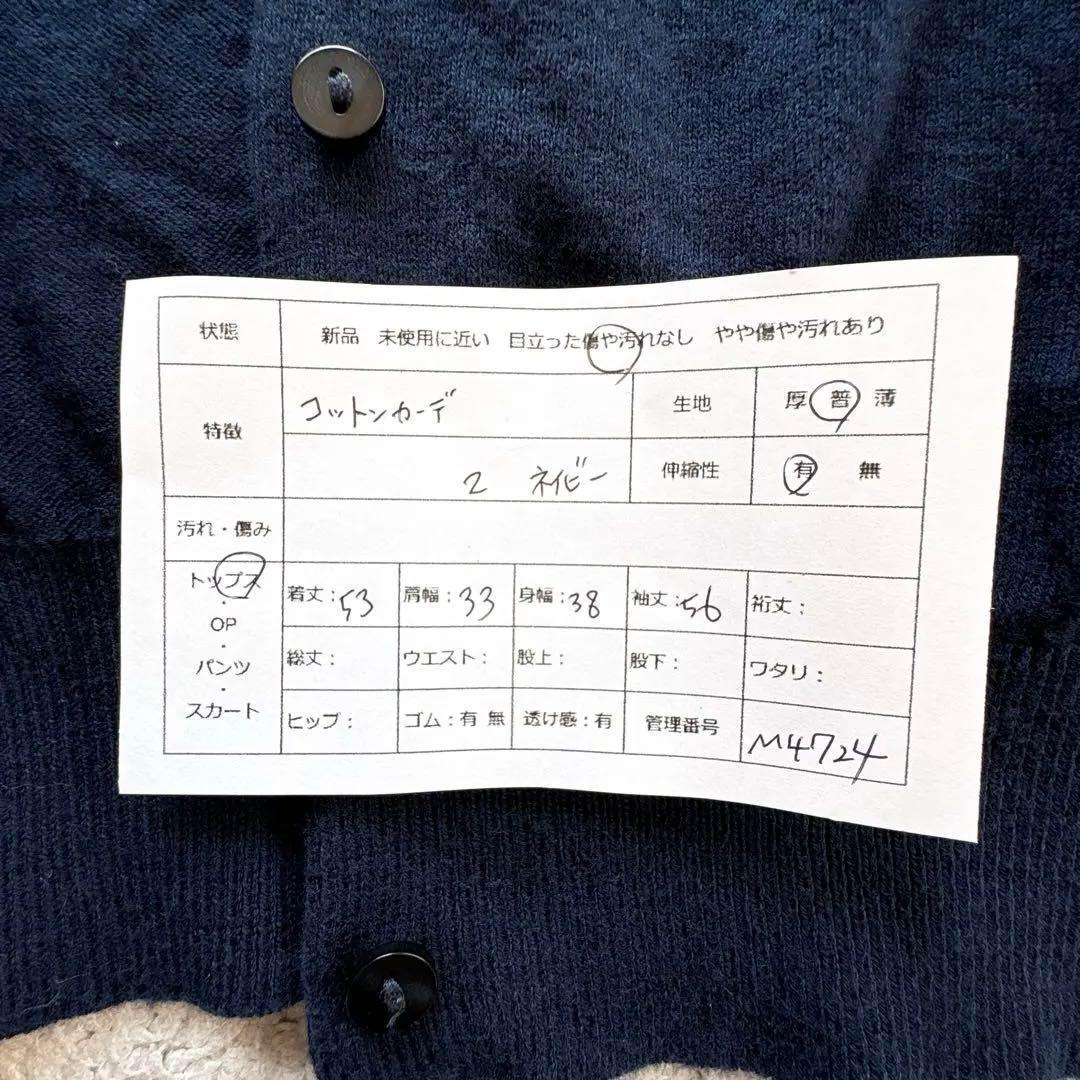 状態 新品 未使用に近い 目立った傷や汚れなし やや傷や汚れあり
特徴 コットンカーデ 生地 厚 普 薄
2 ネイビー 伸縮性 有 無
汚れ・傷み
トップス 着丈:53 肩幅:33 身幅:38 袖丈:56 裄丈:
・
OP
・
総丈: ウエスト: 股上: 股下: ワタリ:
パンツ
・
スカート
ヒップ: ゴム:有 無 透け感:有 管理番号 M4724